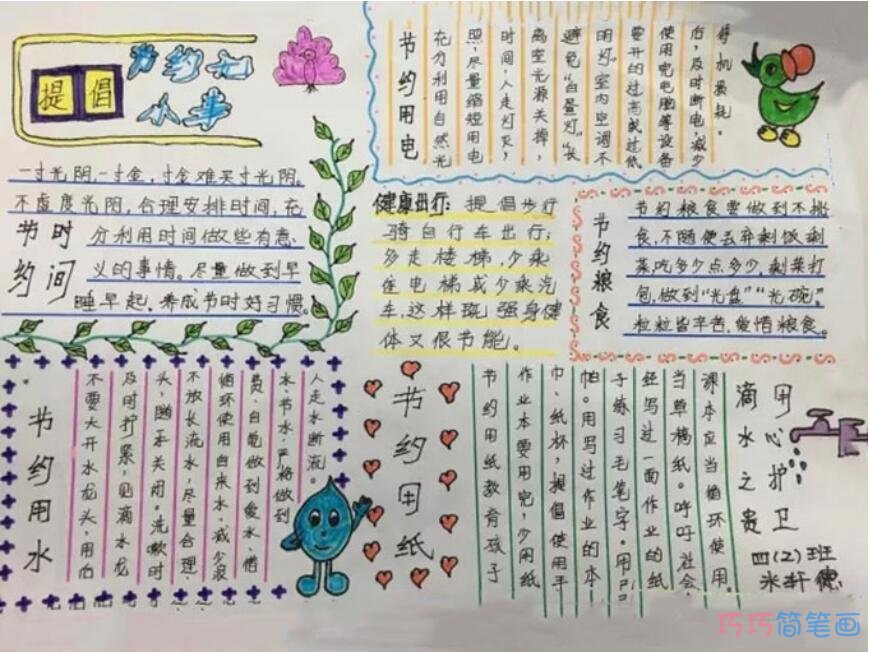 提倡
节约
小事
一寸光阴一寸金,寸金难买寸光阴。
不虚度光阴,合理安排时间,充
节约时间
分利用时间做些有意
义的事情。尽量做到早
睡早起,养成节时好习惯。
节约用电
充分利用自然光
照,尽量缩短用电
时间,人走灯灭,
离室光源关掉,
避免“白昼灯”“长
明灯”室内空调不
要开的过高或过低
使用完电脑等设备
后,及时断电,减少
待机损耗。
健康出行:提倡步行
骑自行车出行;
多走楼梯,少乘
电梯或少乘汽
车,这样既强身健
体又很节能。
节约粮食
节约粮食要做到不挑
食,不随便丢弃剩饭剩
菜吃多少点多少,剩菜打
包,做到“光盘”“光碗”,
粒粒皆辛苦,爱惜粮食。
节约用水
不要大开水龙头,用后
及时拧紧,见滴水龙
头,随手关闭。洗漱时
不放长流水,尽量合理
循环使用自来水,减少浪
费,自觉做到爱水、惜
水、节水,严格做到
人走水断流。
节约用纸
节约用纸教育孩子
作业本要用完,少用纸
巾、纸杯,提倡使用手
帕。用写过作业的本
子练习毛笔字。用已
经写过一面作业的纸
当草稿纸。呼吁社会
课本应当循环使用。
滴水之贵
用心护卫
四(2)班
米轩德
巧巧简笔画